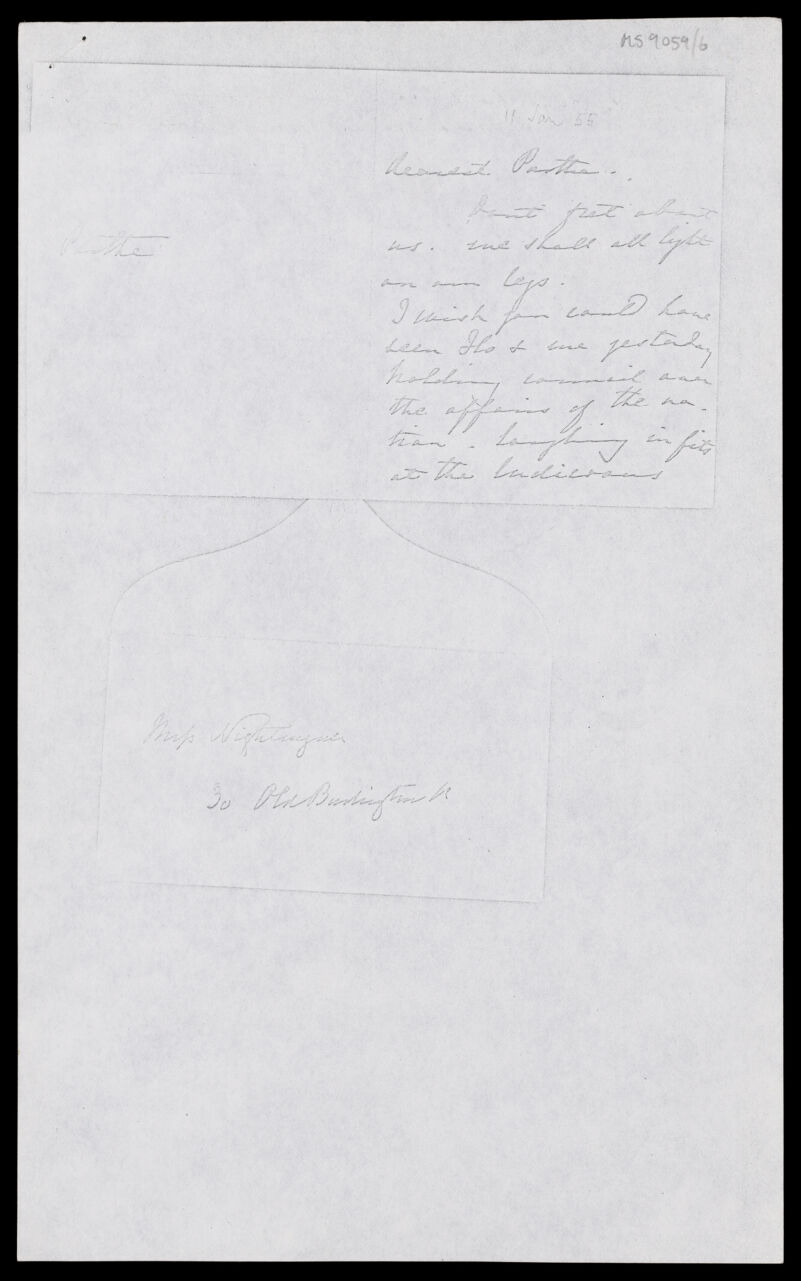 MS 9059/6
11 Jan 55
dearest Parthe.
Parthe
Dont fret about
us. we shall all light
on our legs.
I wish you could have
seen Flo & me yesterday
holding council over
the affairs of the na-
tion - laughing in fits
at the ludicrous
Miss Nightingale
30 Old Burlington St